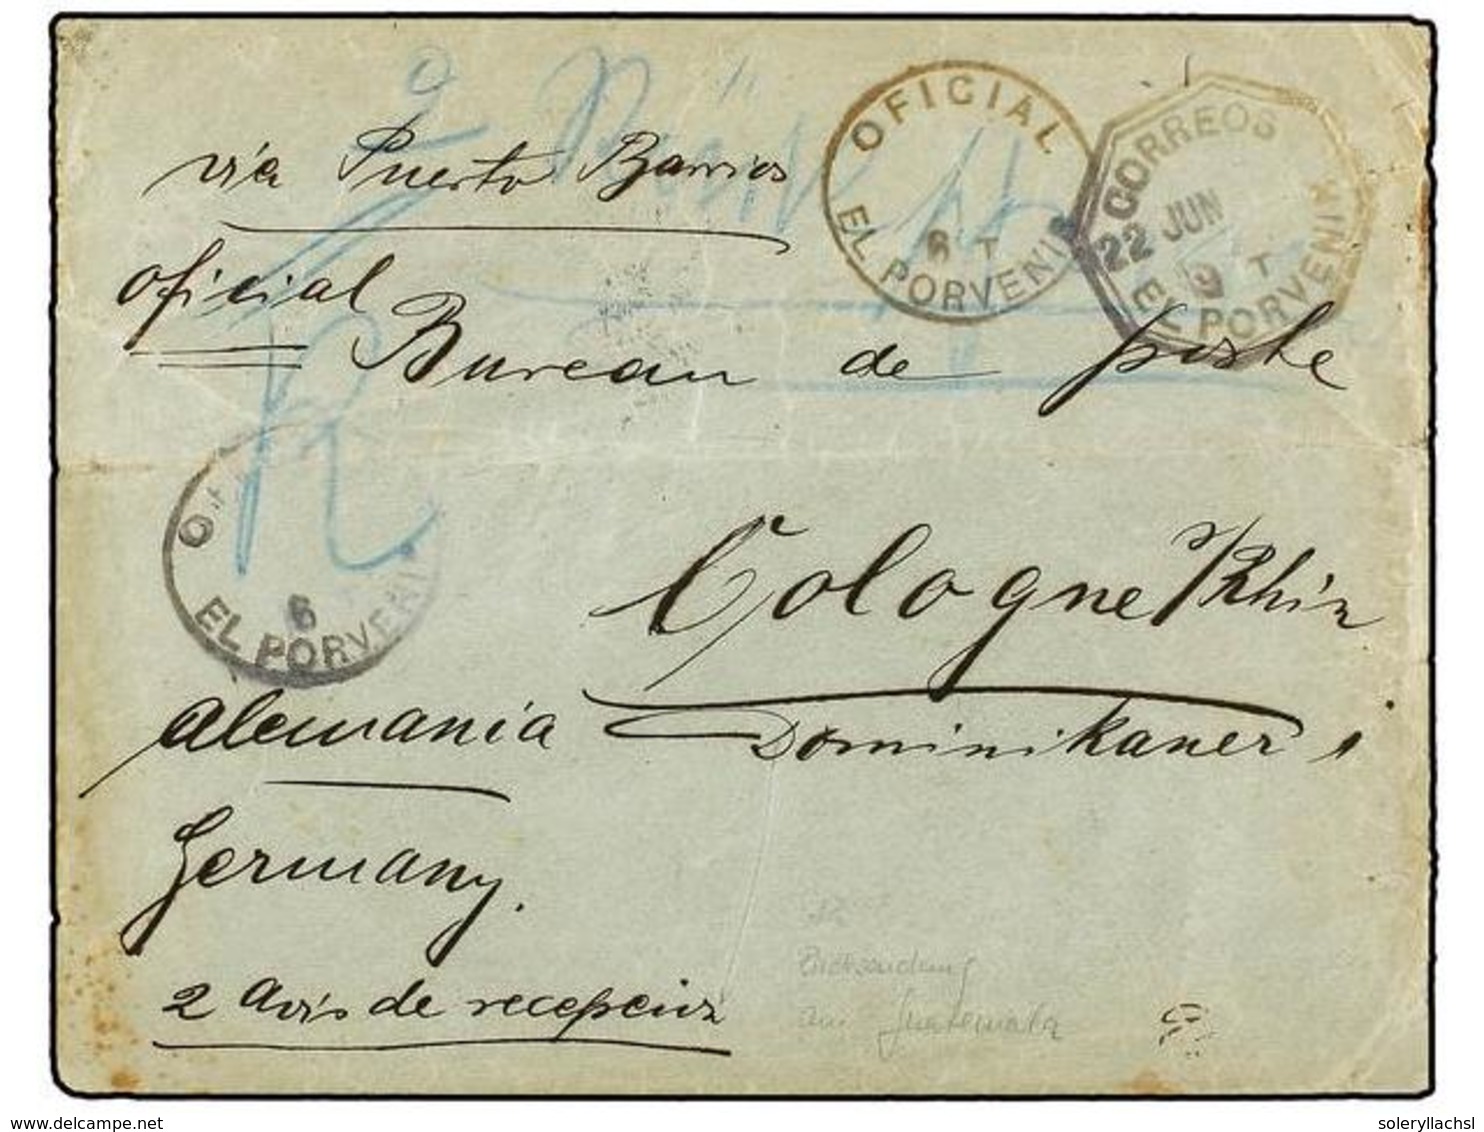 via Puerto Barrios
OFICIAL
6 T
EL PORVENIR
CORREOS
22 JUN
9 T
EL PORVENIR
oficial
Bureau de poste
R
6
EL PORVENIR
Cologne s/Rhin
Alemania
Dominikaner
Germany.
2 Avis de recepción
Guatemala
delcampe.net
soleryllachsl